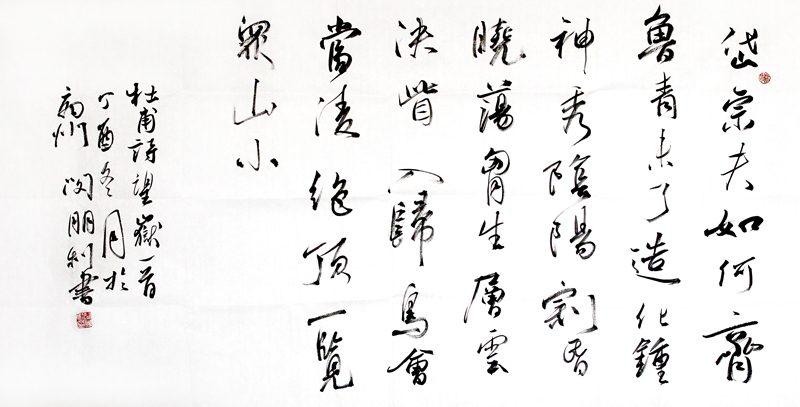 岱宗夫如何齊
魯青未了造化鍾
神秀陰陽割昏
曉蕩胷生層雲
決眥入歸鳥會
當凌絶頂一覽
眾山小
杜甫詩望嶽一首
丁酉冬月於
州朋利書